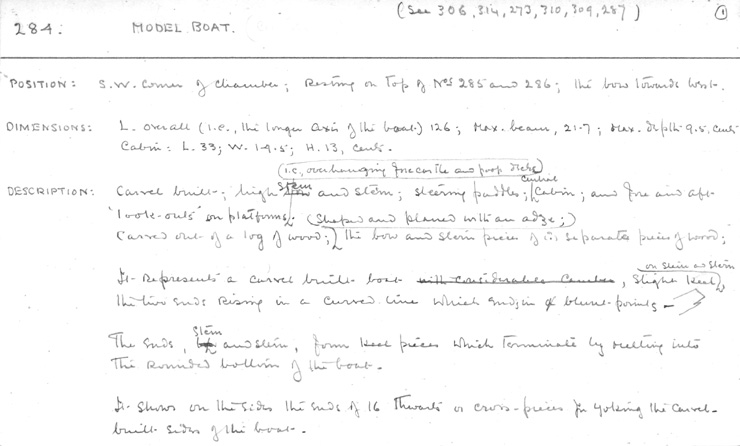 (See 306, 314, 273, 310, 309, 287) 1
284. MODEL BOAT.
POSITION: S.W. corner of chamber; Resting on top of Nos 285 and 286; the bow towards West.
DIMENSIONS: L. overall (i.e., the longer axis of the boat) 126; Max. beam, 21.7; Max. depth 9.5, cents.
Cabin: L. 33; W. 14.5; H. 13, cents.
(i.e., overhanging forecastle and poop decks)
DESCRIPTION: Carvel built; high stem and stern; steering paddles; central cabin; and fore and aft
"look-outs" on platforms. (Shaped and planed with an adze;)
Carved out of a log of wood; the bow and stern pieces of separate pieces of wood;
on stem and stern
It represents a carvel built boat with considerable camber, slight keel,
the two ends rising in a curved line which ends in blunt-points —
The ends, stem and stern, form keel pieces which terminate by melting into
the rounded bottom of the boat.
It shows on the sides the ends of 16 thwarts or cross-pieces for yoking the carvel-
built sides of the boat.